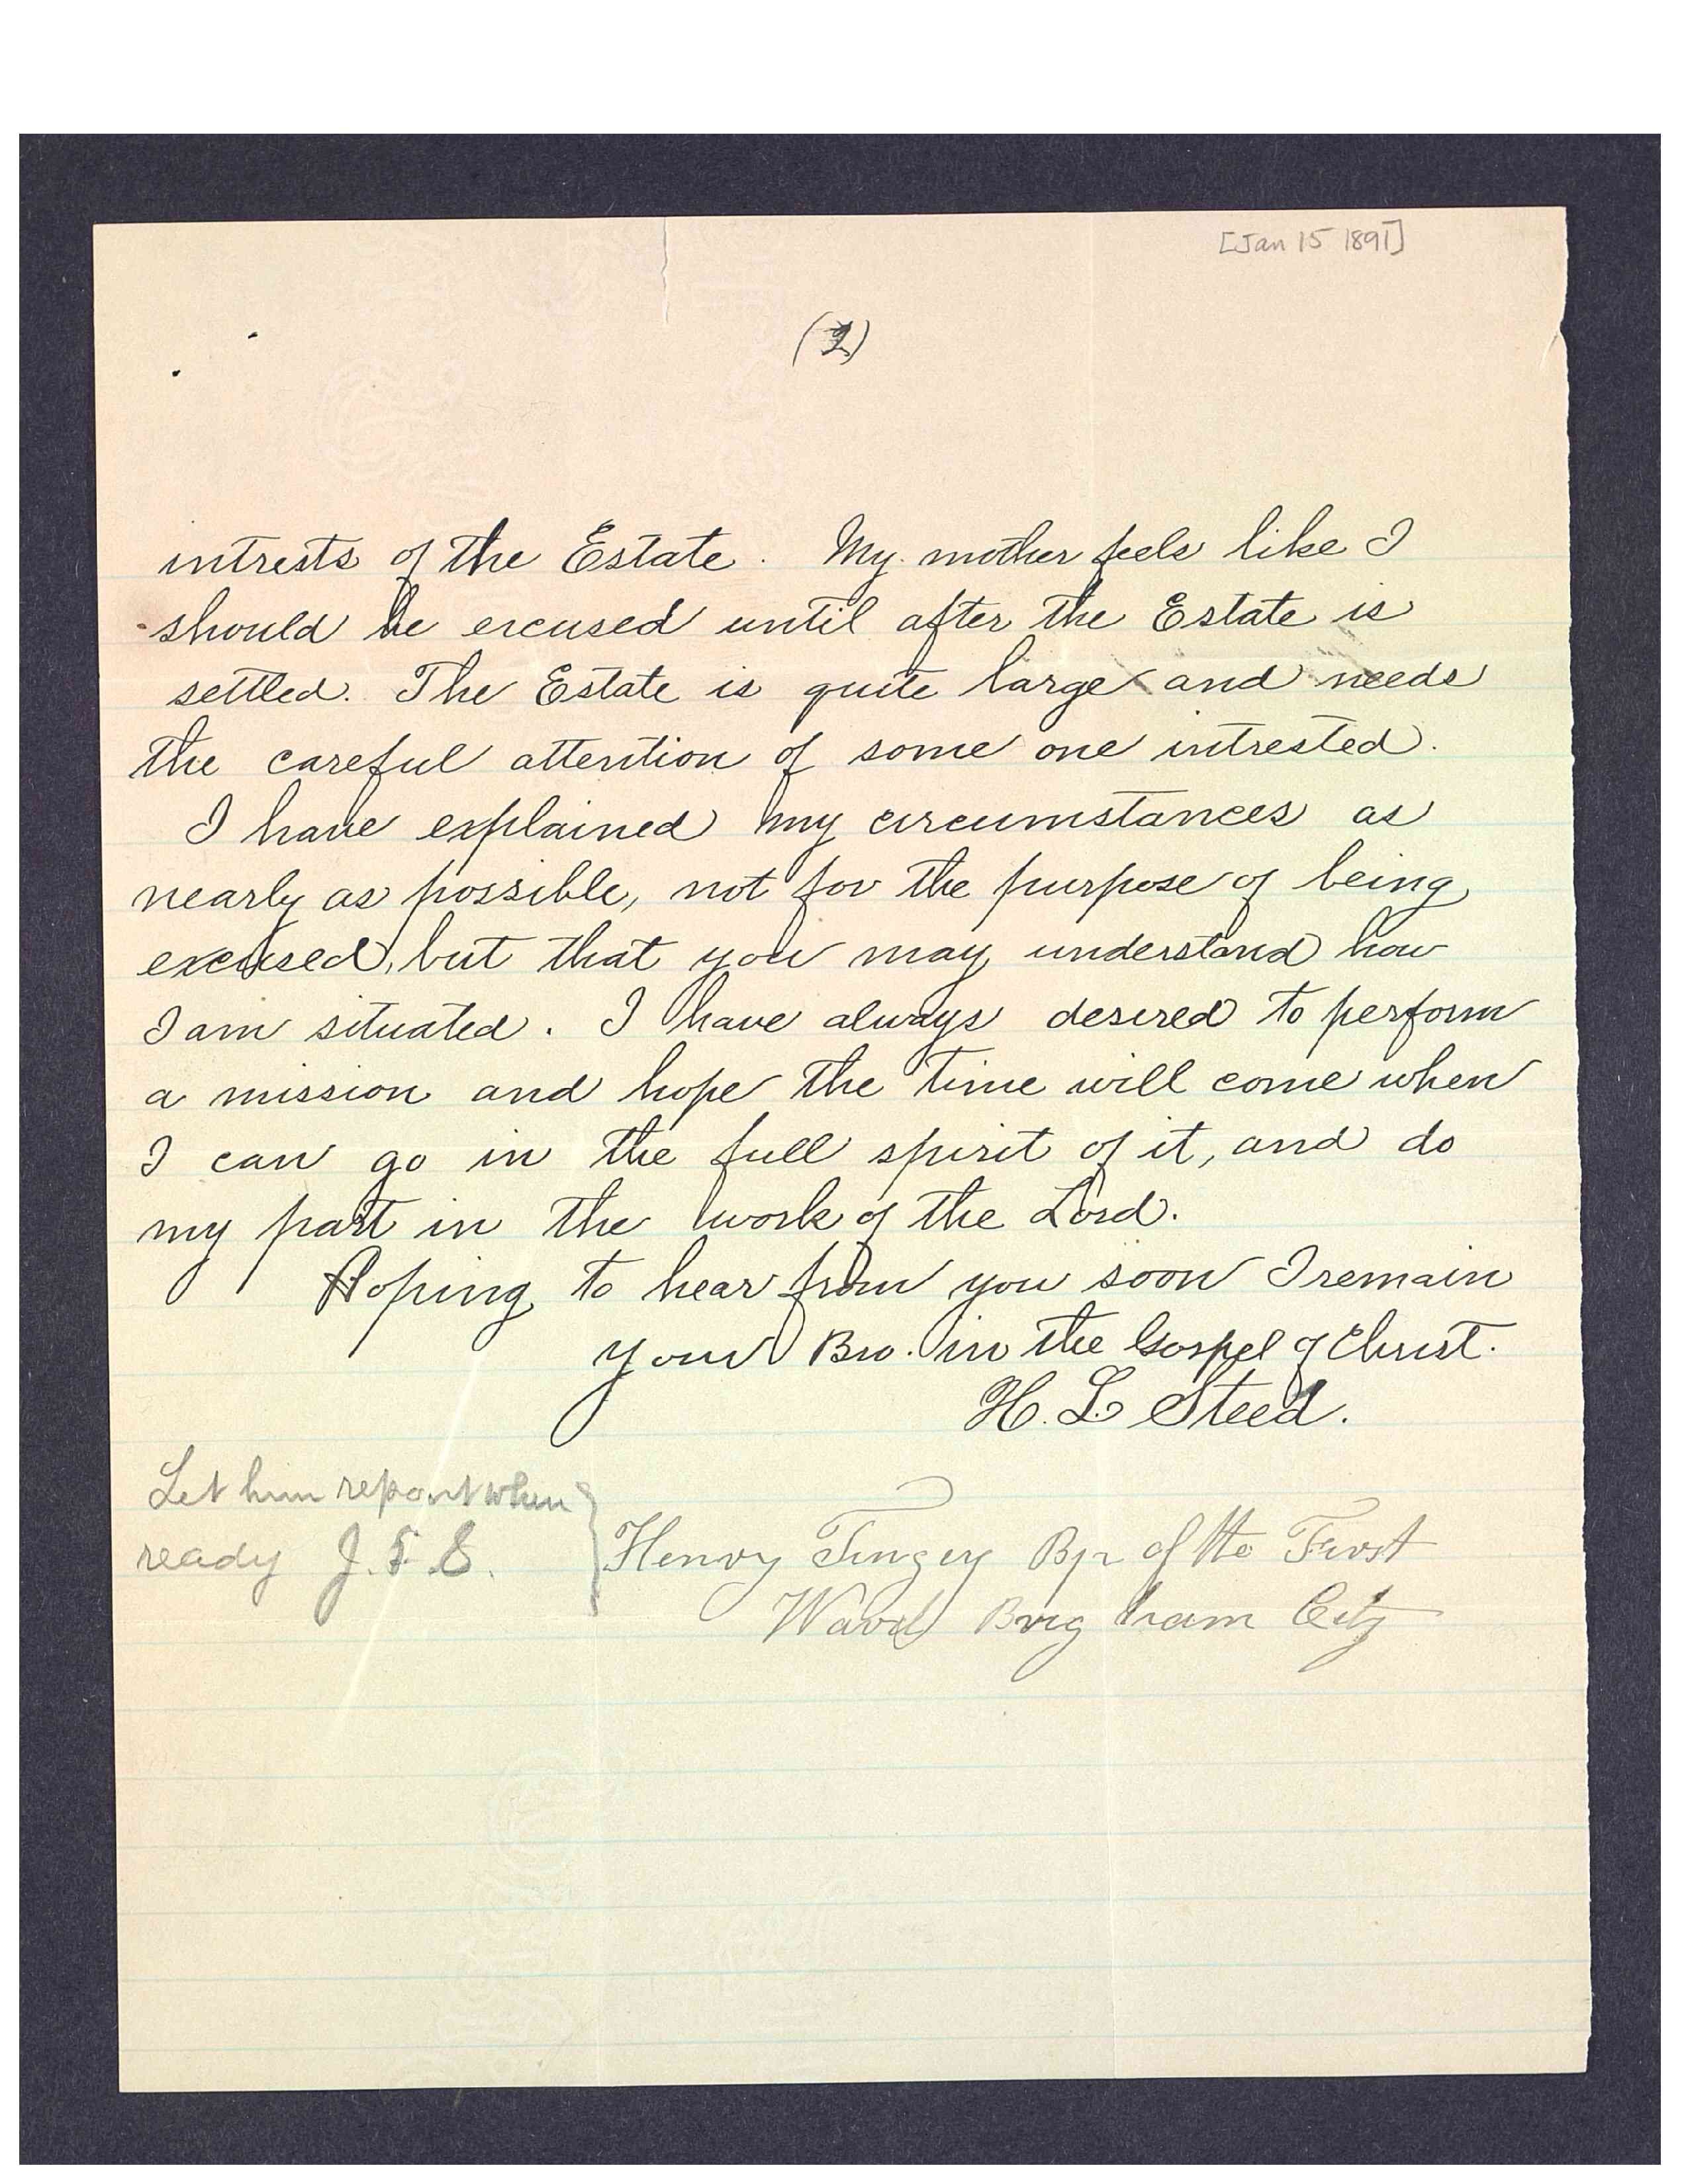 [Jan 15 1891]
(2)
intrests of the Estate. My mother feels like I
should be excused until after the Estate is
settled. The Estate is quite large and needs
the careful attention of some one intrested.
I have explained my circumstances as
nearly as possible, not for the purpose of being
excused, but that you may understand how
I am situated. I have always desired to perform
a mission and hope the time will come when
I can go in the full spirit of it, and do
my part in the work of the Lord.
Hoping to hear from you soon I remain
your Bro. in the Gospel of Christ.
H. L. Steed.
Let him report when
ready J. F. S.
Henry Tingey Bp of the First
Ward Brigham City